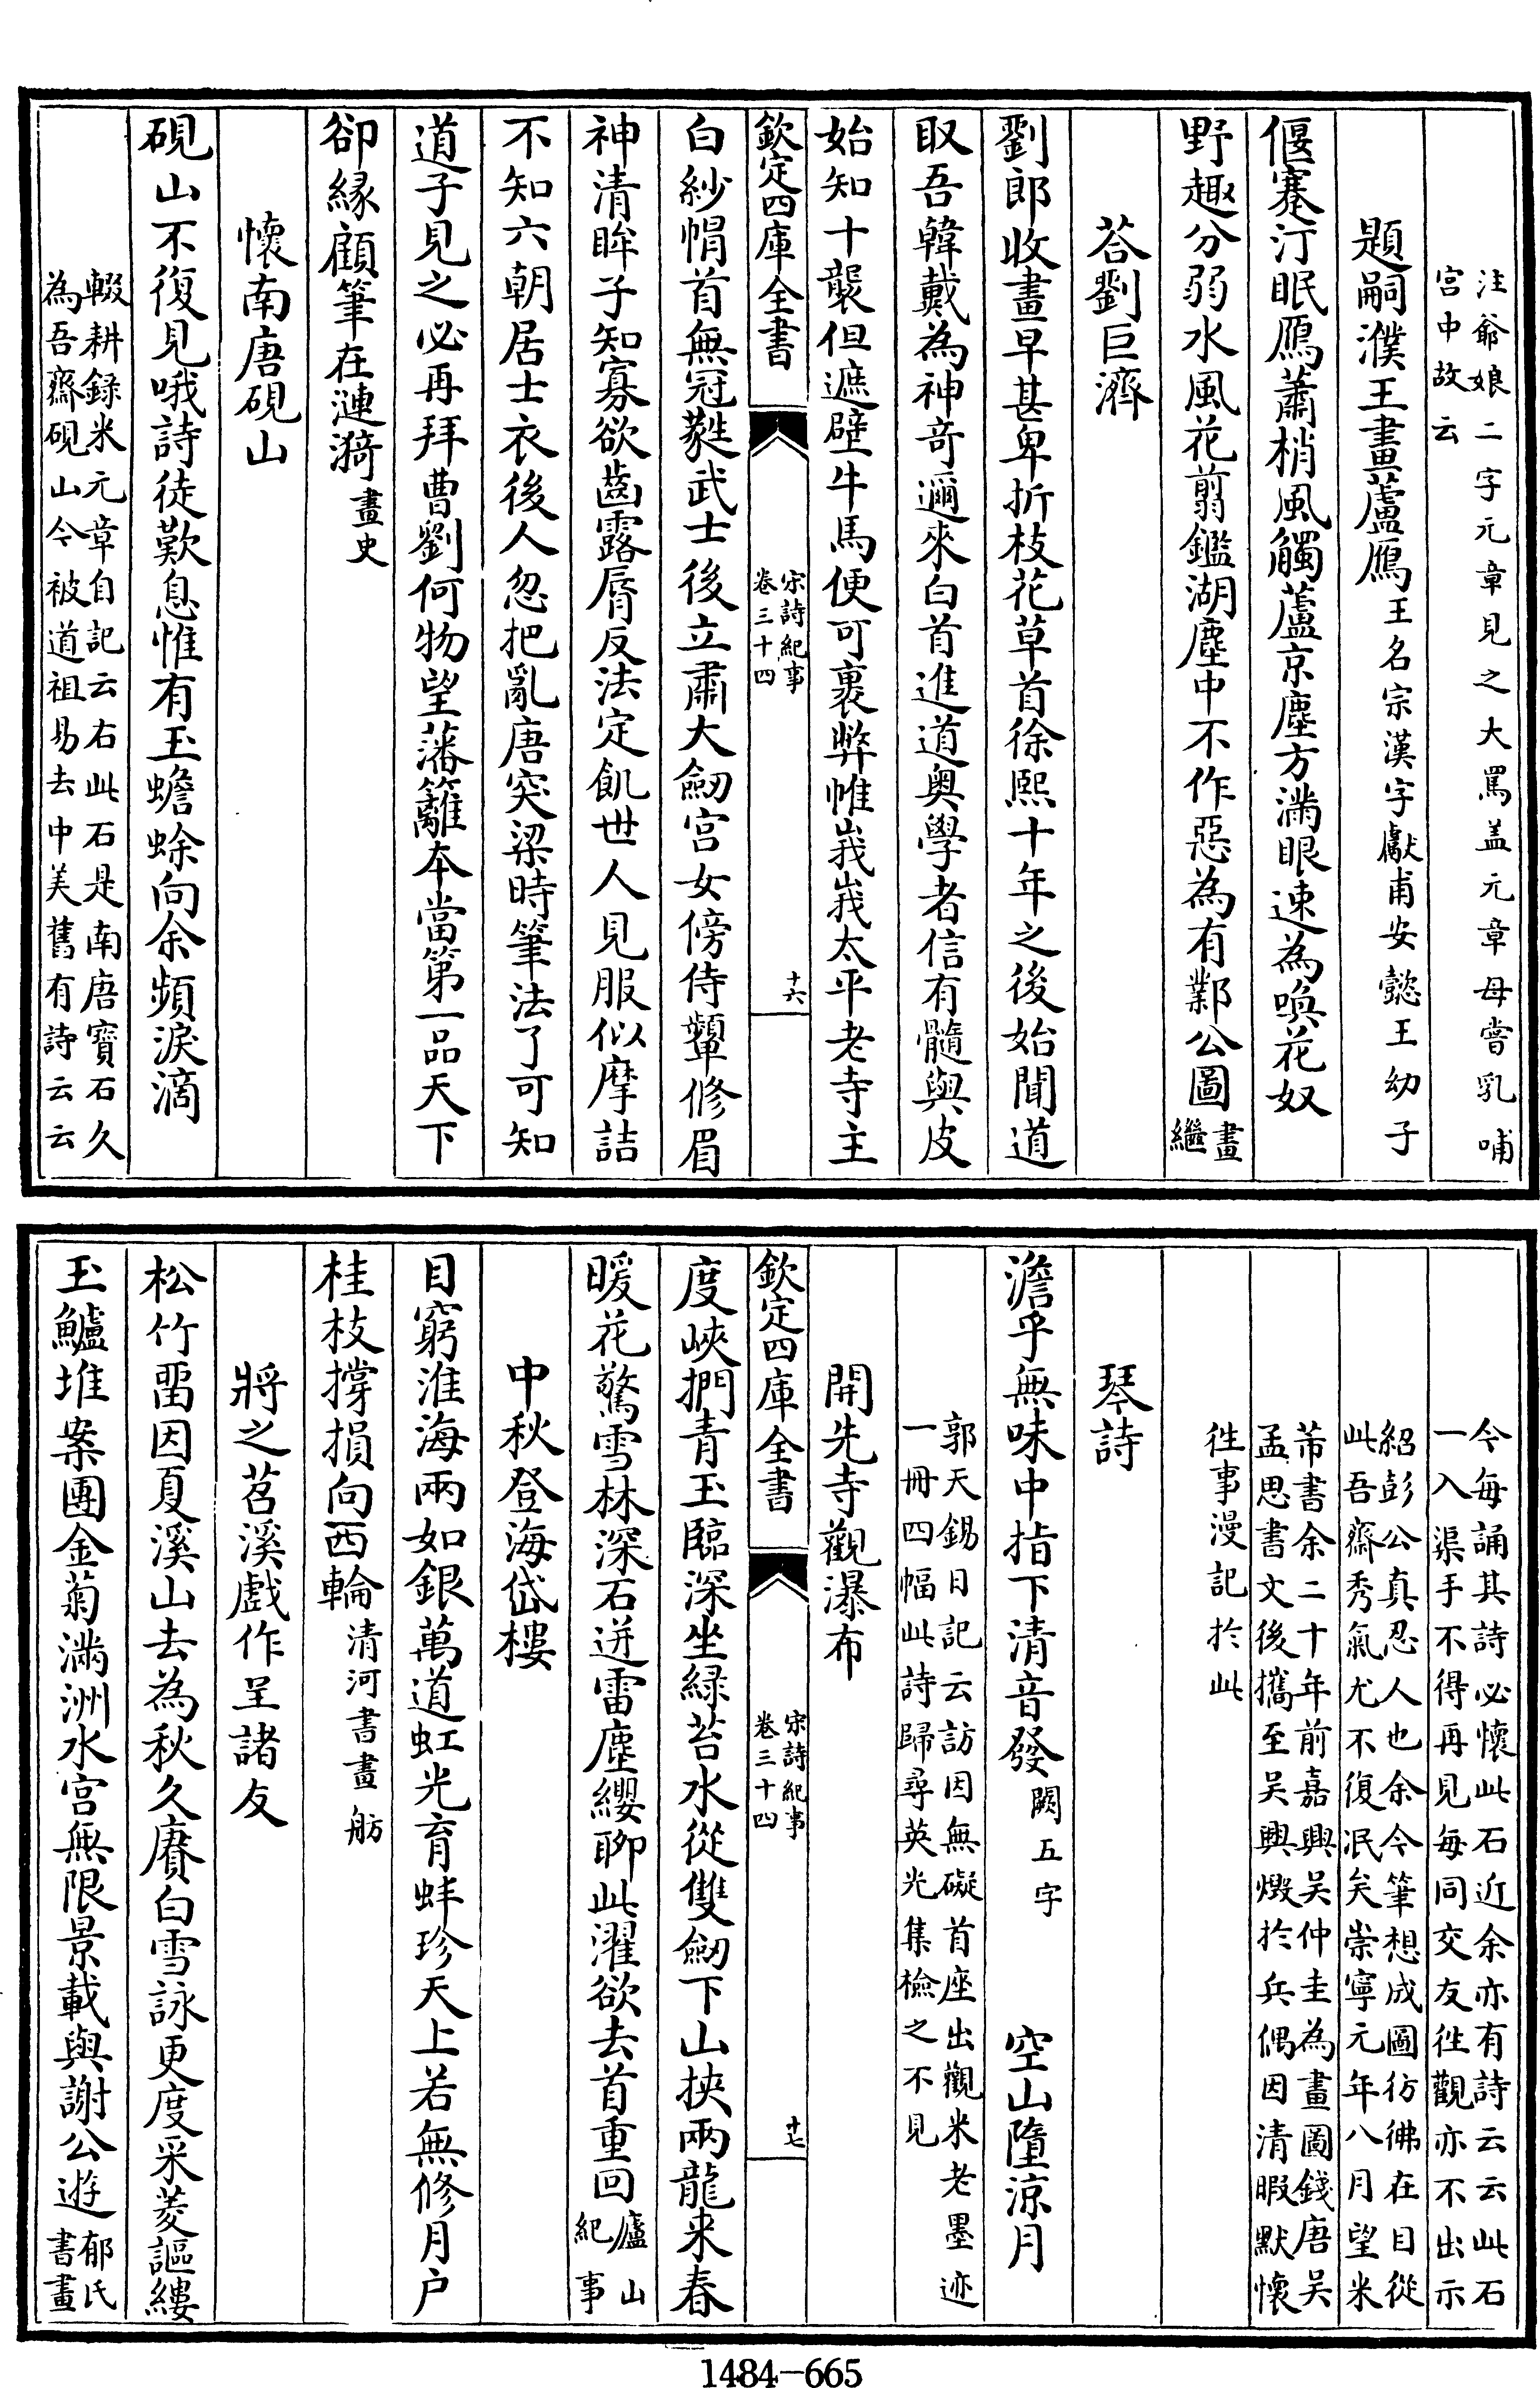 注爺娘二字元章見之大罵盖元章母嘗乳哺
宫中故云
題嗣濮王畫蘆鴈王名宗漢字獻甫安懿王幼子
偃蹇汀眠鴈蕭梢風觸蘆京塵方滿眼速為喚花奴
野趣分弱水風花翦鑑湖塵中不作惡為有鄴公圖畫
繼
荅劉巨濟
劉郎收畫早甚卑折枝花草首徐熙十年之後始聞道
取吾韓戴為神竒邇來白首進道奥學者信有髓與皮
始知十襲但遮壁牛馬便可裹弊帷峩峩太平老寺主
欽定四庫全書
宋詩紀事
卷三十四
十六
白紗帽首無冠蕤武士後立肅大劒宫女傍侍顰修眉
神清眸子知寡欲齒露脣反法定飢世人見服似摩詰
不知六朝居士衣後人忽把亂唐突梁時筆法了可知
道子見之必再拜曹劉何物望藩籬本當第一品天下
卻緣顧筆在漣漪畫史
懷南唐硯山
硯山不復見哦詩徒歎息惟有玉蟾蜍向余頻淚滴
輟耕録米元章自記云右此石是南唐寳石久
為吾齋硯山今被道祖易去中美舊有詩云云
今每誦其詩必懷此石近余亦有詩云云此石
一入渠手不得再見每同交友徃觀亦不出示
紹彭公真忍人也余今筆想成圖彷彿在目從
此吾齋秀氣尤不復泯矣崇寧元年八月望米
芾書余二十年前嘉興吴仲圭為畫圖錢唐吴
孟思書文後攜至吴興燬於兵偶因清暇默懷
徃事漫記於此
琴詩
澹乎無味中指下清音發闕五字 空山墮涼月
郭天錫日記云訪因無礙首座出觀米老墨迹
一冊四幅此詩歸尋英光集檢之不見
開先寺觀瀑布
欽定四庫全書
宋詩紀事
卷三十四
十七
度峽捫青玉臨深坐緑苔水從雙劒下山挾兩龍来春
暖花驚雪林深石迸雷塵纓聊此濯欲去首重回廬山
紀事
中秋登海岱樓
目窮淮海兩如銀萬道虹光育蚌珍天上若無修月户
桂枝撐損向西輪清河書畫舫
將之苕溪戲作呈諸友
松竹畱因夏溪山去為秋久賡白雪詠更度采菱謳縷
玉鱸堆案團金菊滿洲水宫無限景載與謝公遊郁氏
書畫
1484-665